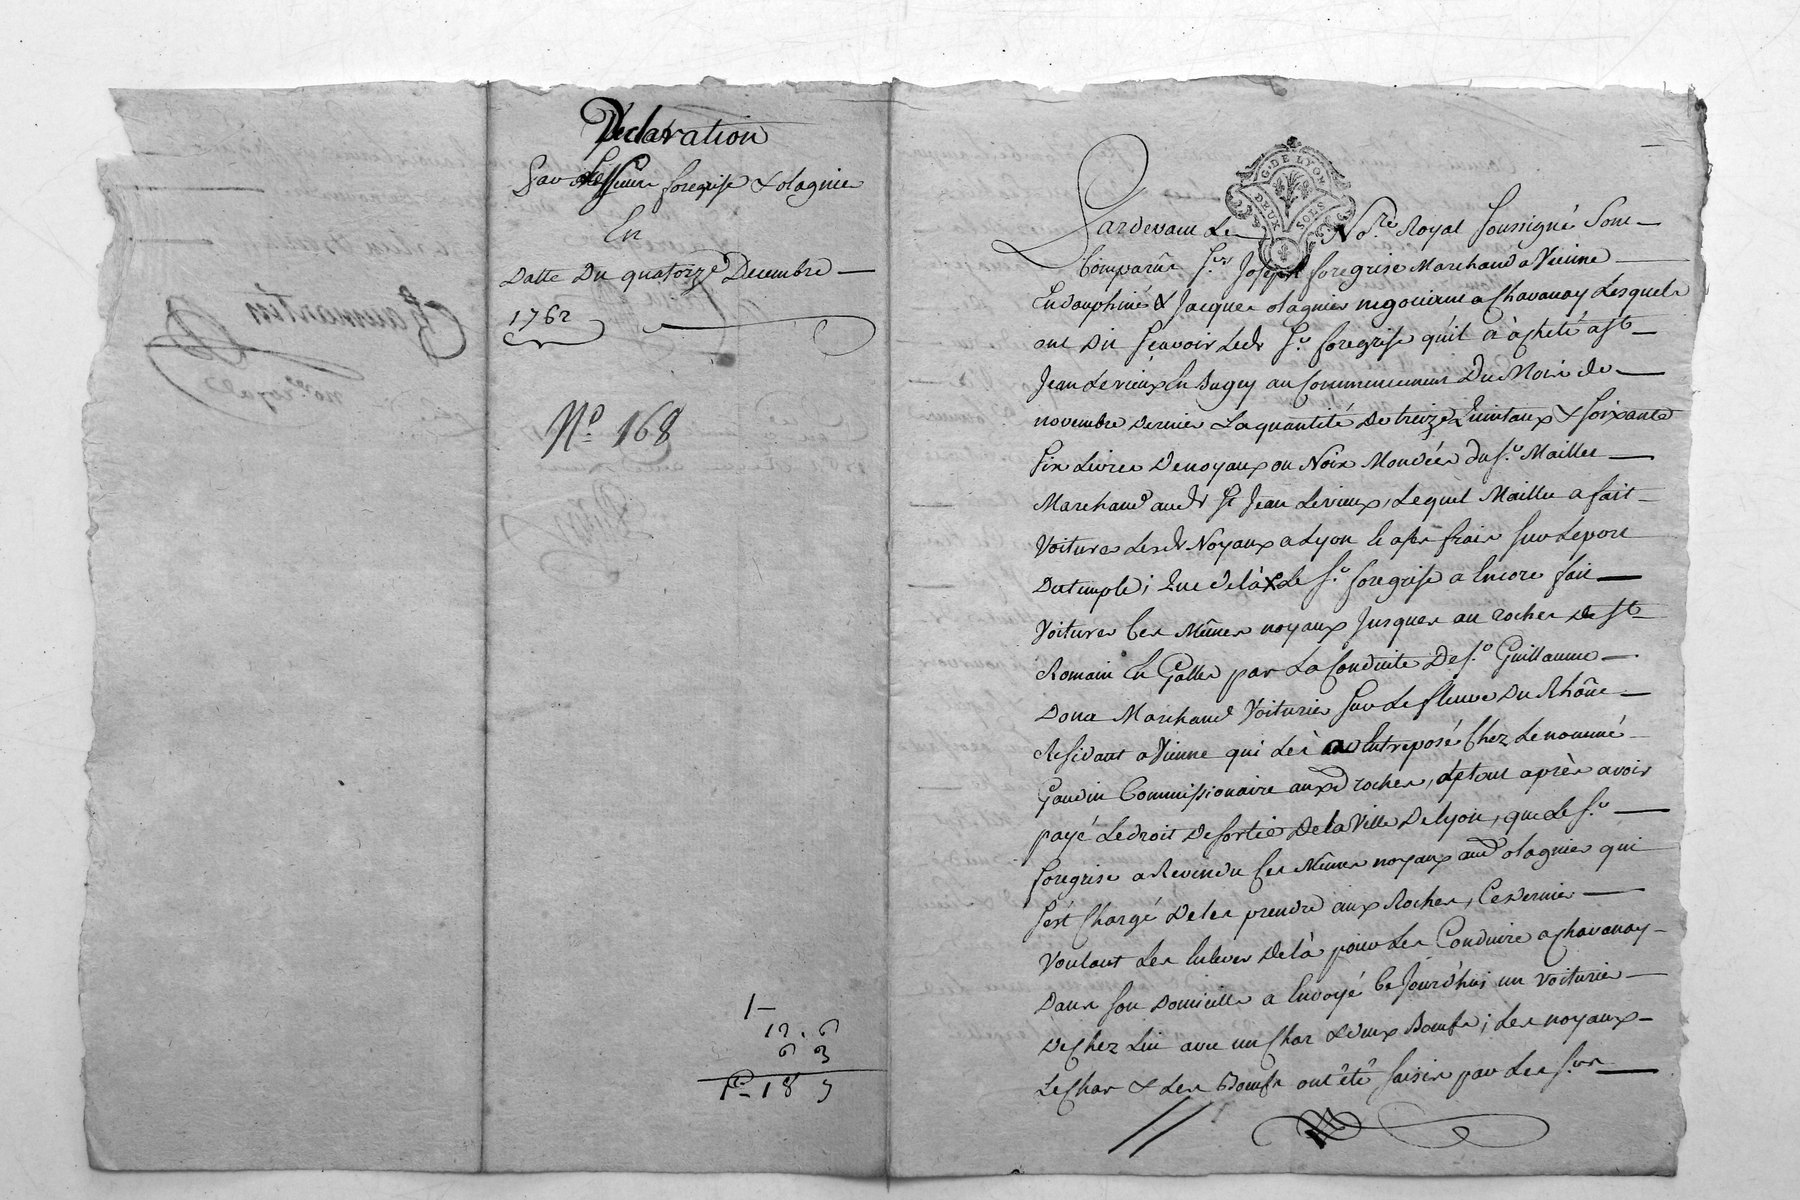 Declaration
Par Messieurs foregrise & olagnier
En
Datte Du quatorze Decembre
1762
N° 168
1 -
12. 6
6 3
1# 18 9
G. DE LYON
DEUX SOLS
Pardevant Le No.re Royal Soussigné Sont
Comparûs S.rs Joseph foregrise Marchand a Vienne
En dauphiné & Jacques olagnier negociant a Chavanay Lesquels
ont Dit Sçavoir Ledt Sr. foregrise qu'il à achété a St
Jean Le vieux En Bugey au Commencement Du Mois de
novembre dernier La quantité De treize Quintaux & soixante
six Livres De noyaux ou Noix Mondées du Sr. Maillet
Marchand aud St Jean Le vieux, Lequel Maillet a fait
Voiturer Lesd Noyaux a Lyon à ses frais sur Le port
Du temple; Que de là Le Sr. foregrise a Encore fait
Voiturer Ces Mêmes noyaux Jusques au rocher de St
Romain En Galles par La Conduite De Sr. Guillaume
Dona Marchand Voiturier Sur Le fleuve Du Rhône
Residant a Vienne qui Les a Entreposé Chez Le nommé
Gaudin Commissionaire auxd roches, Le tout après avoir
payé Le droit De sortie De la Ville De Lyon, que Le Sr.
foregrise a Revendu Ces Mêmes noyaux aud olagnier qui
s'ést Chargé De les prendre aux Roches, Ce dernier
Voulant Les Enlever De là pour Les Conduire a Chavanay
Dans son Domicille a Envoyé Ce Jourd'hui un voiturier
De Chez Lui avec un Char & deux Bœufs; Les noyaux
Le Char & Les Bœufs ont été saisis par Les S.rs